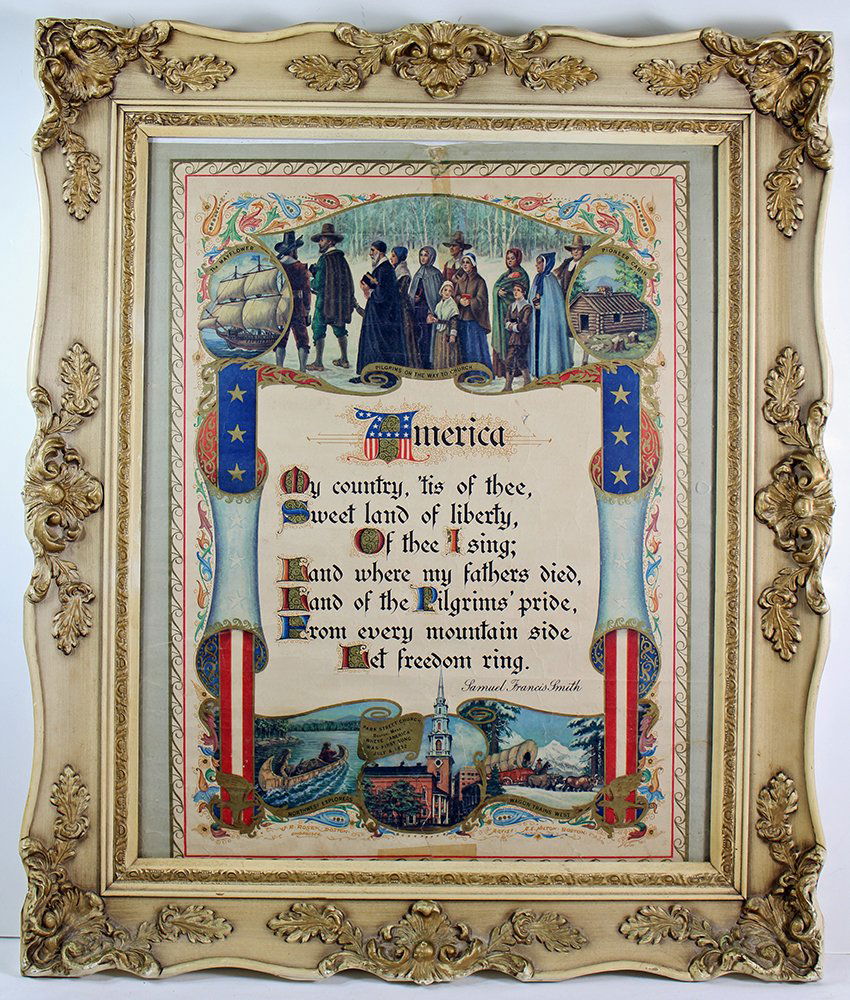 The MAYFLOWER
PIONEER CABIN
PILGRIMS ON THE WAY TO CHURCH
America
My country, 'tis of thee,
Sweet land of liberty,
Of thee I sing;
Land where my fathers died,
Land of the Pilgrims' pride,
From every mountain side
Let freedom ring.
Samuel Francis Smith
PARK STREET CHURCH
WHERE "AMERICA"
WAS FIRST SUNG
JULY 4, 1832
NORTHWEST EXPLORERS
WAGON TRAINS WEST
BOSTON
ARTIST
BOSTON